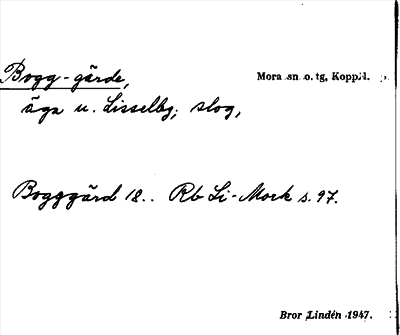 Bogg-gärde, Mora sn o. tg, Koppl.
äga u. Lisselby; slog,
Bogggärd 18.. Rb Li-Mork s. 97.
Bror Lindén 1947.